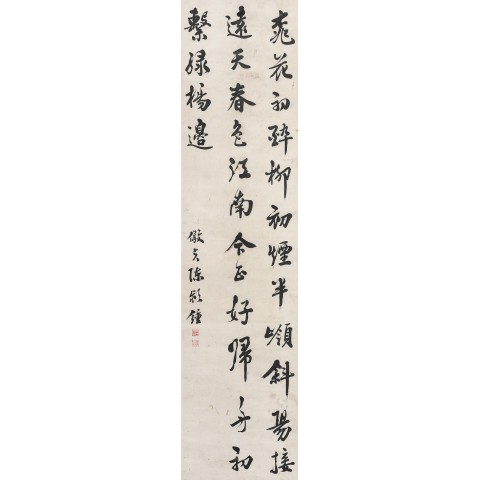 桃花初醉柳初煙半嶺斜陽接
遠天春色江南今正好歸舟初
繫綠楊邊
陳
鍾